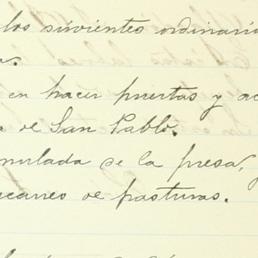 los sirvientes ordinari
s.
en hacer puertas y ac
a de San Pablo.
mulada de la presa,
caneo de pasturas.